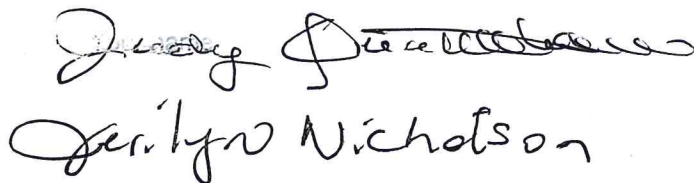 Judy
Jerilyn Nicholson